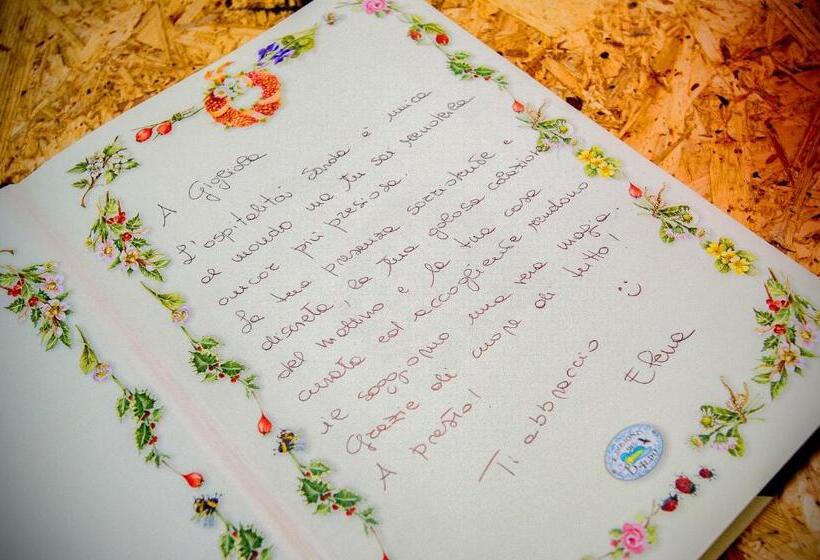 A Gigliola
L'ospitalità sarda è unica
al mondo ma tu sai renderla
ancor più preziosa.
La tua presenza sorridente e
discreta, la tua golosa colazione
del mattino e la tua casa
curata ed accogliente rendono
il soggiorno una vera magia.
Grazie di cuore di tutto!
A presto! :)
Ti abbraccio
Elena